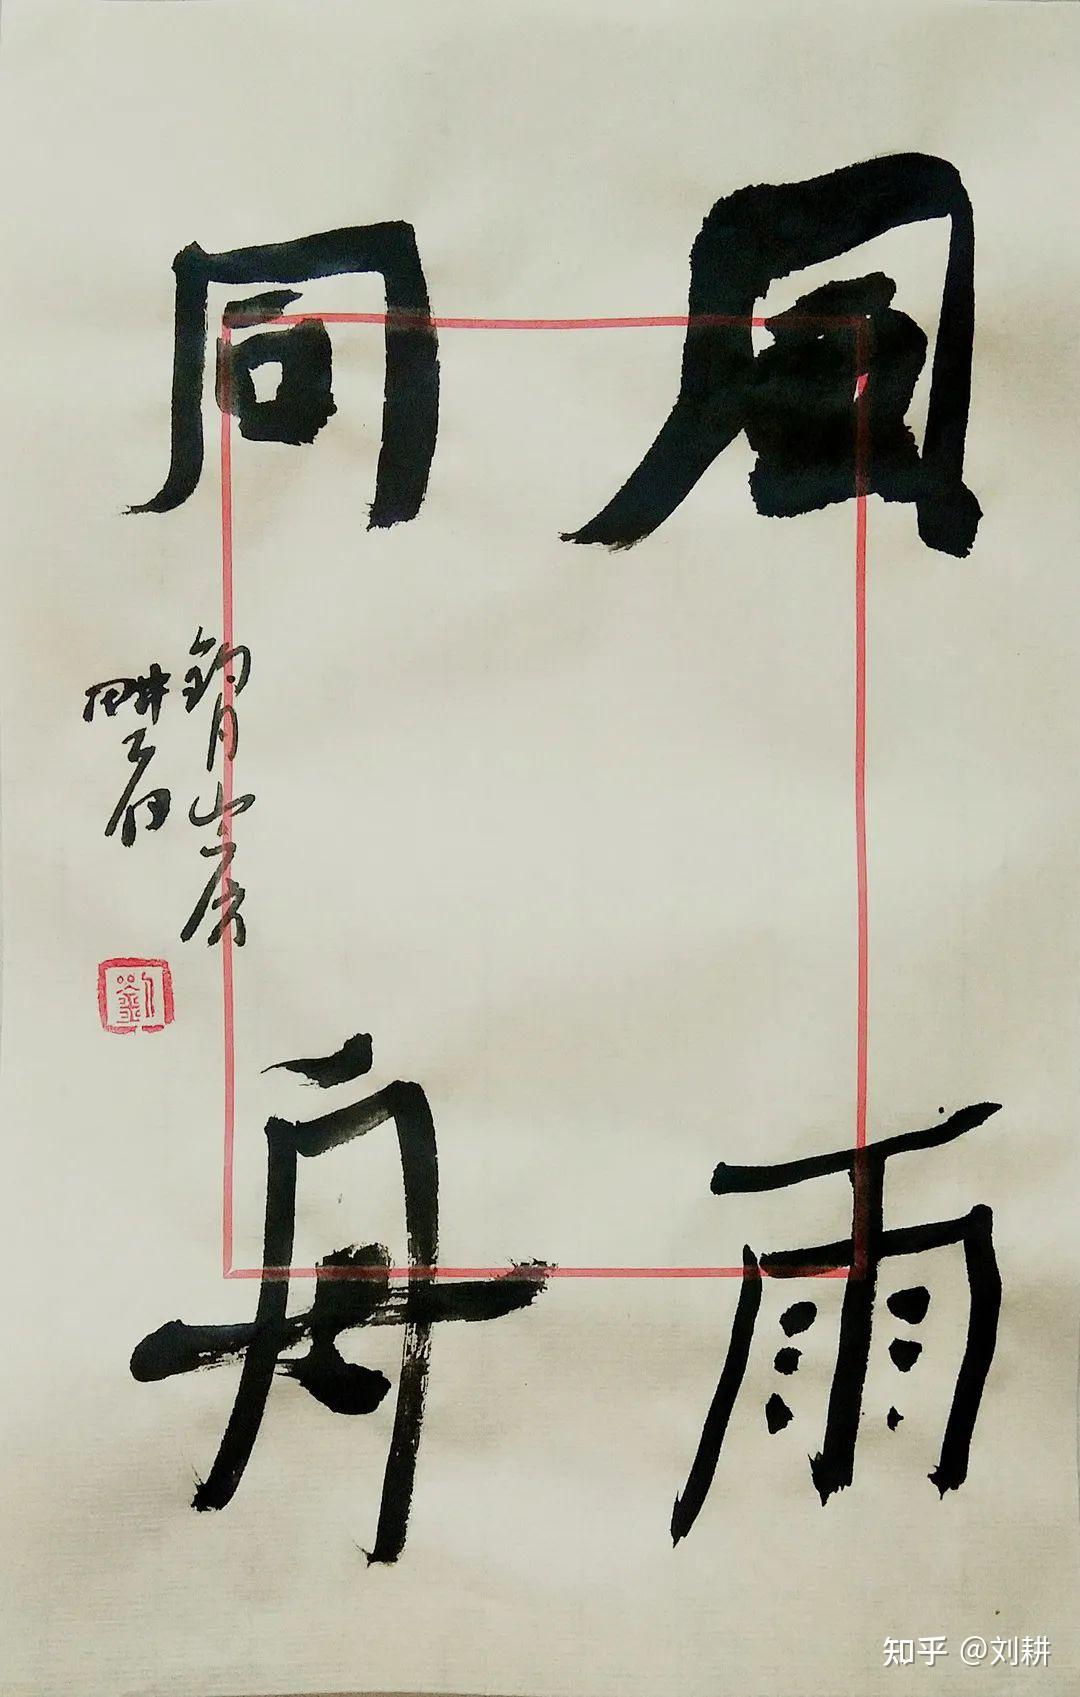 風雨
同舟
釣月山房
畊石
劉
知乎 @刘耕